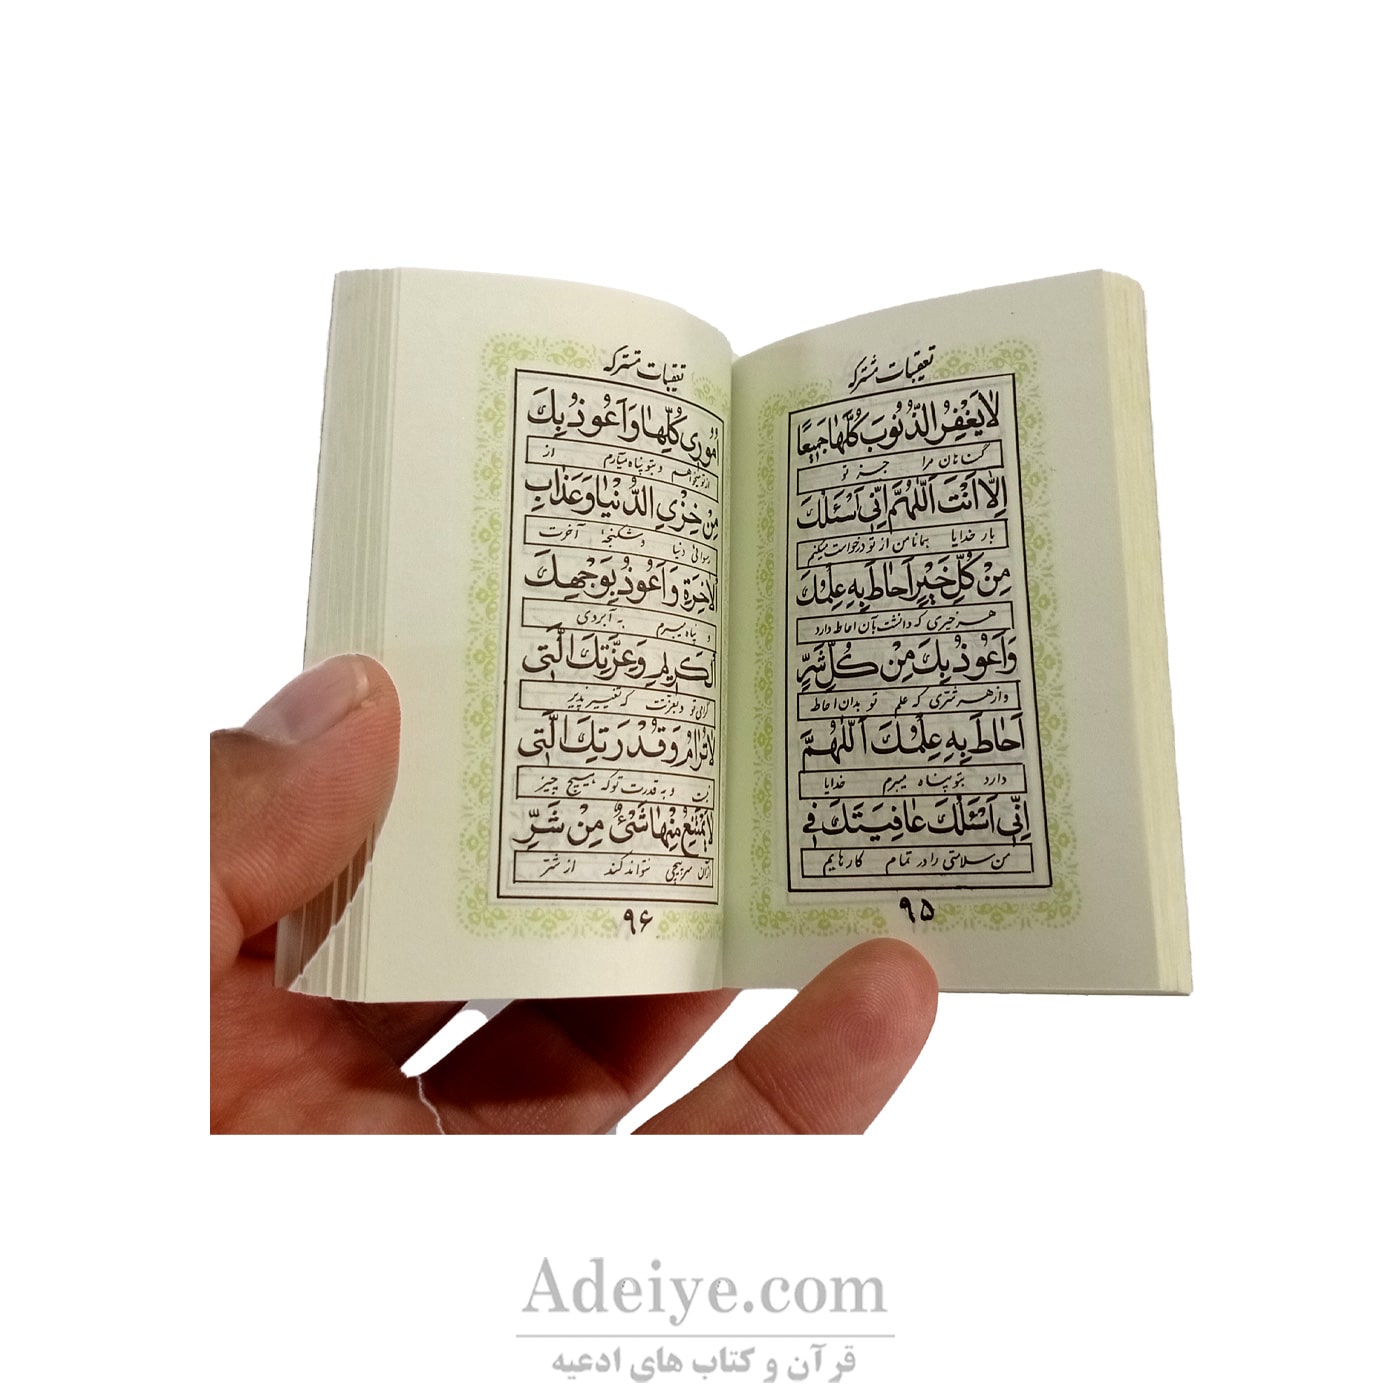 تعقیبات مشترکه
لا یَغْفِرُ الذُّنُوبَ کُلَّهٰا جَمیٖعًا
گناهان مرا جز تو
اِلّٰا اَنْتَ اَللّٰهُمَّ اِنّٖی اَسْئَلُکَ
بار خدایا همانا من از تو درخواست میکنم
مِنْ کُلِّ خَیْرٍ اَحٰاطَ بِهِ عِلْمُکَ
هر خیری که دانشت بآن احاطه دارد
وَ اَعُوذُ بِکَ مِنْ کُلِّ شَرٍّ
و از هر شتری که علم تو بدان احاطه
اَحٰاطَ بِهِ عِلْمُکَ اَللّٰهُمَّ
دارد بتو پناه میبرم خدایا
اِنّٖی اَسْئَلُکَ عٰافِیَتَکَ فٖی
من سلامتی را در تمام کارهایم
۹۵
تعقیبات مشترکه
اُمُورٖی کُلِّهٰا وَ اَعُوذُ بِکَ
از تو میخواهم و بتو پناه میآرم از
مِنْ خِزْیِ الدُّنْیٰا وَ عَذٰابِ
رسوائی دنیا و شکنجهٔ آخرت
الْاٰخِرَةِ وَ اَعُوذُ بِوَجْهِکَ
و پناه میبرم به آبروی
الْکَرٖیمِ وَ عِزَّتِکَ الَّتٖی
گرامی تو و بعزتت که تغییر پذیر
لٰا تُرٰامُ وَ قُدْرَتِکَ الَّتٖی
نیست و به قدرت تو که هیچ چیز
لٰا یَمْتَنِعُ مِنْهٰا شَیْئٌ مِنْ شَرِّ
از آن سرپیچی نتواند کند از شتر
۹۶
Adeiye.com
قرآن و کتاب های ادعیه